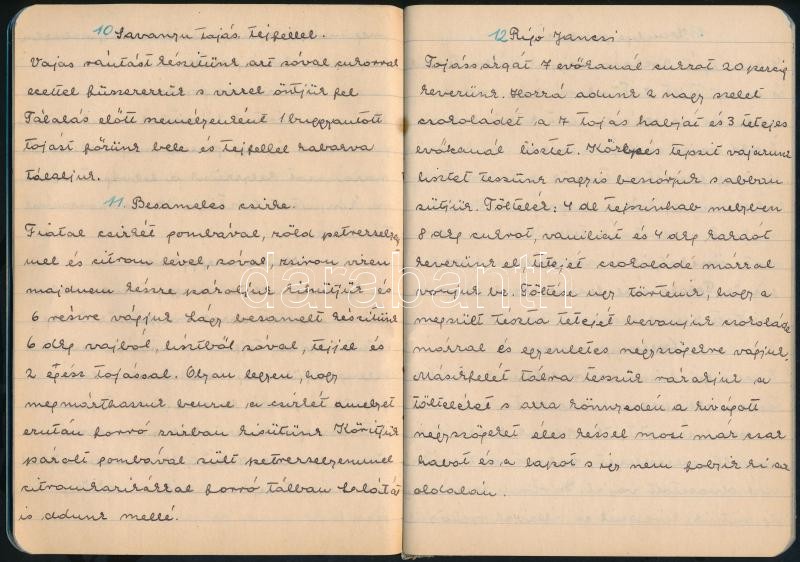 10 Savanyu tojás tejfellel.
Vajas rántást készitünk azt sóval cukorral
ecettel füszerezzük s vizzel öntjük fel
Tálalás előtt személyenként 1 buggyantott
tojást főzünk bele és tejfellel habarva
tálaljuk.
11. Besameles csirke.
Fiatal csirkét gombával, zöld petrezsely
mel és citrom lével, sóval, zsiron vizen
majdnem készre pároljuk kisütjük és
6 részre vágjuk Lágy besamelt készitünk
6 dkg vajból, lisztből sóval, tejjel és
2 egész tojással. Olyan legyen, hogy
megmárthassuk benne a csirkét amelyet
ezután forró zsirban kisütünk Köritjük
párolt gombával sült petrezselyemmel
citromkarikákkal forró tálban salátá
is adunk mellé.
12 Rijó Jancsi
Tojássárgát 7 evőkanál cukrot 20 percig
keverünk. Hozzá adunk 2 nagy szelet
csokoládét a 7 tojás habját és 3 tetejes
evőkanál lisztet. Közbe tepsit vajazunk
lisztet teszünk vagyis beszórjuk s abban
sütjük. Töltelék: 4 dl tejszinhab melyben
8 dkg cukrot, vaniliát és 4 dkg kakaót
keverünk el tetejét csokoládé mázzal
vonjuk be. Töltése ugy történik, hogy a
megsült tészta tetejét bevonjuk csokoládé
mázzal és egyenletes négyszögekre vágjuk.
Másikfelét tálra tesszük rárakjuk a
tölteléket s arra könnyedén a kivágott
négyszögeket éles késsel most már csak
habot és a lapot s igy nem folyik ki az
oldalán.
darabanth